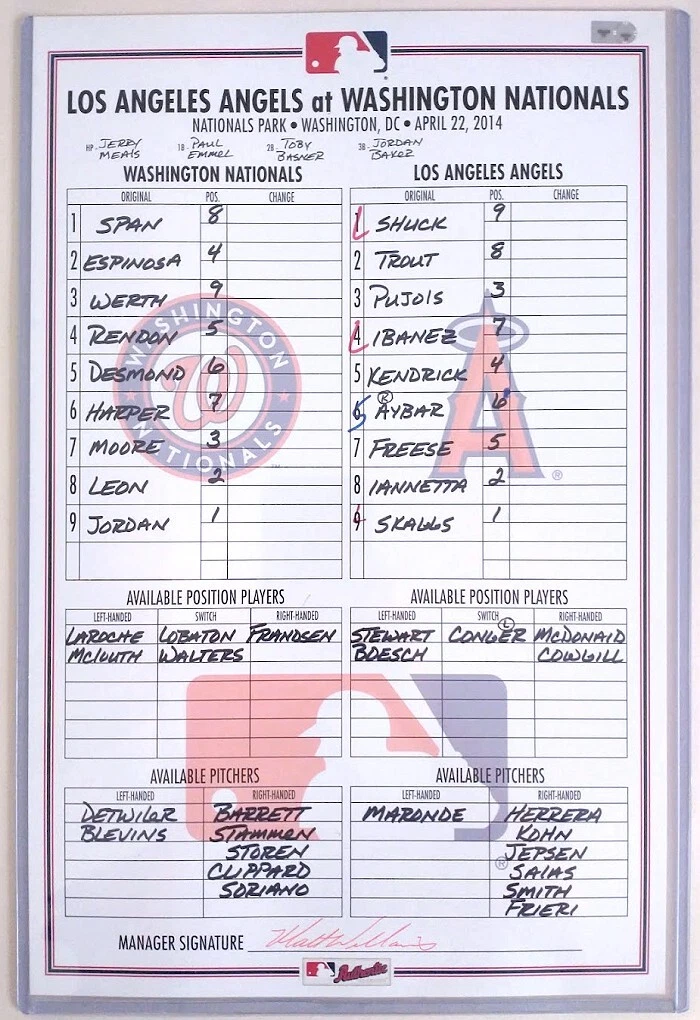 LOS ANGELES ANGELS at WASHINGTON NATIONALS
NATIONALS PARK • WASHINGTON, DC • APRIL 22, 2014
HP - JERRY MEALS 1B - PAUL EMMEL 2B - TOBY BASNER 3B - JORDAN BAKER
WASHINGTON NATIONALS
ORIGINAL POS. CHANGE
1 SPAN 8
2 ESPINOSA 4
3 WERTH 9
4 RENDON 5
5 DESMOND 6
6 HARPER 7
7 MOORE 3
8 LEON 2
9 JORDAN 1
WASHINGTON NATIONALS
W
LOS ANGELES ANGELS
ORIGINAL POS. CHANGE
1 L SHUCK 9
2 TROUT 8
3 PUJOLS 3
4 L IBANEZ 7
5 KENDRICK 4
6 S R AYBAR 6
7 FREESE 5
8 IANNETTA 2
9 SKAGGS 1
A ®
AVAILABLE POSITION PLAYERS
LEFT-HANDED SWITCH RIGHT-HANDED
LAROCHE LOBATON FRANDSEN
MCLOUTH WALTERS
AVAILABLE POSITION PLAYERS
LEFT-HANDED SWITCH RIGHT-HANDED
STEWART CONGER L McDONALD
BOESCH COWGILL
AVAILABLE PITCHERS
LEFT-HANDED RIGHT-HANDED
DETWILER BARRETT
BLEVINS STAMMEN
STOREN
CLIPPARD
SORIANO
AVAILABLE PITCHERS
LEFT-HANDED RIGHT-HANDED
MARONDE HERRERA
KOHN
® JEPSEN
SALAS
SMITH
FRIERI
MANAGER SIGNATURE Matt Williams
Authentic